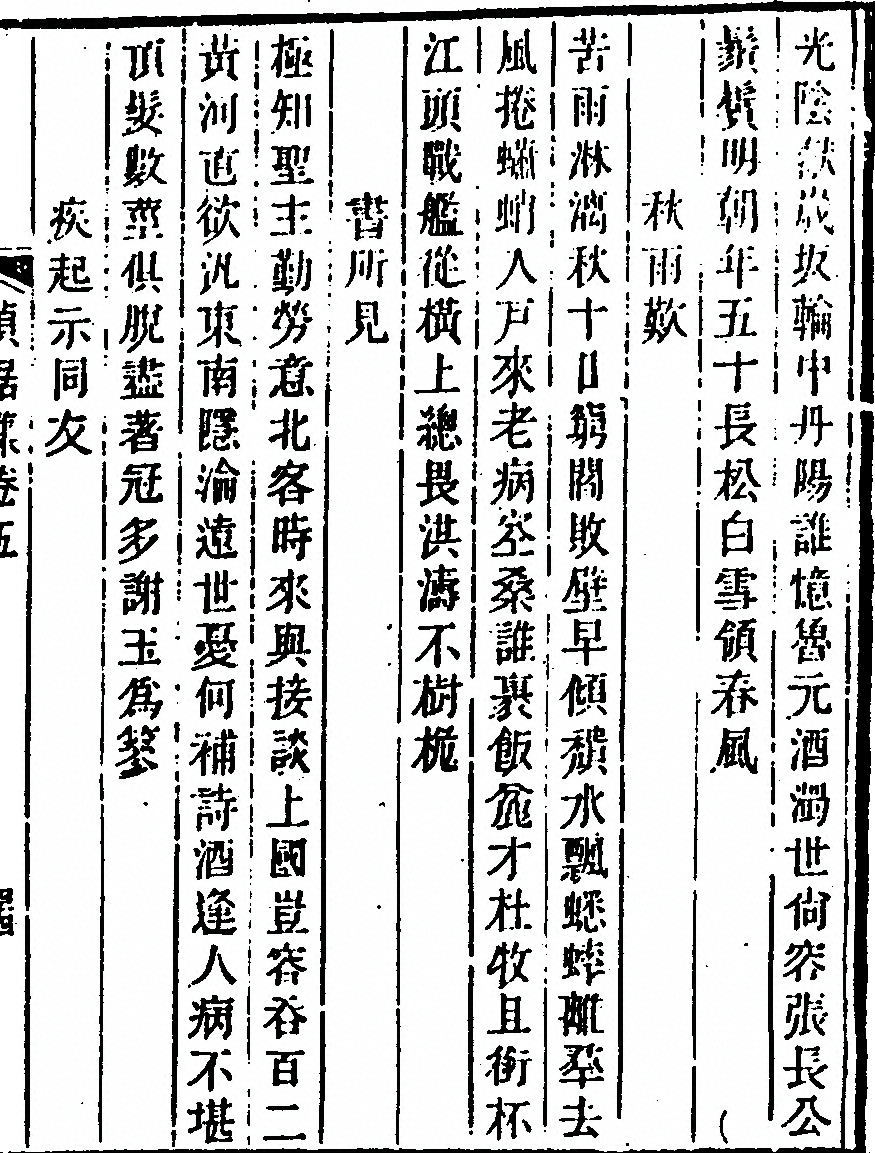 光陰歘歲坂輪中丹陽誰憶魯元酒溷世尙容張長公
鬚鬢明朝年五十長松白雪領春風
秋雨歎
苦雨淋漓秋十日窮閻敗壁早傾頹水飄蟋蟀離羣去
風捲蠨蛸入戸來老病空桑誰裹飯麄才杜牧且銜杯
江頭戰艦從橫上總畏洪濤不樹桅
書所見
極知聖主勤勞意北客時來與接談上國豈容吞百二
黃河直欲汎東南隱淪遠世憂何補詩酒逢人病不堪
頂髮數莖俱脫盡著冠多謝玉爲簪
疾起示同友
貞居集卷五